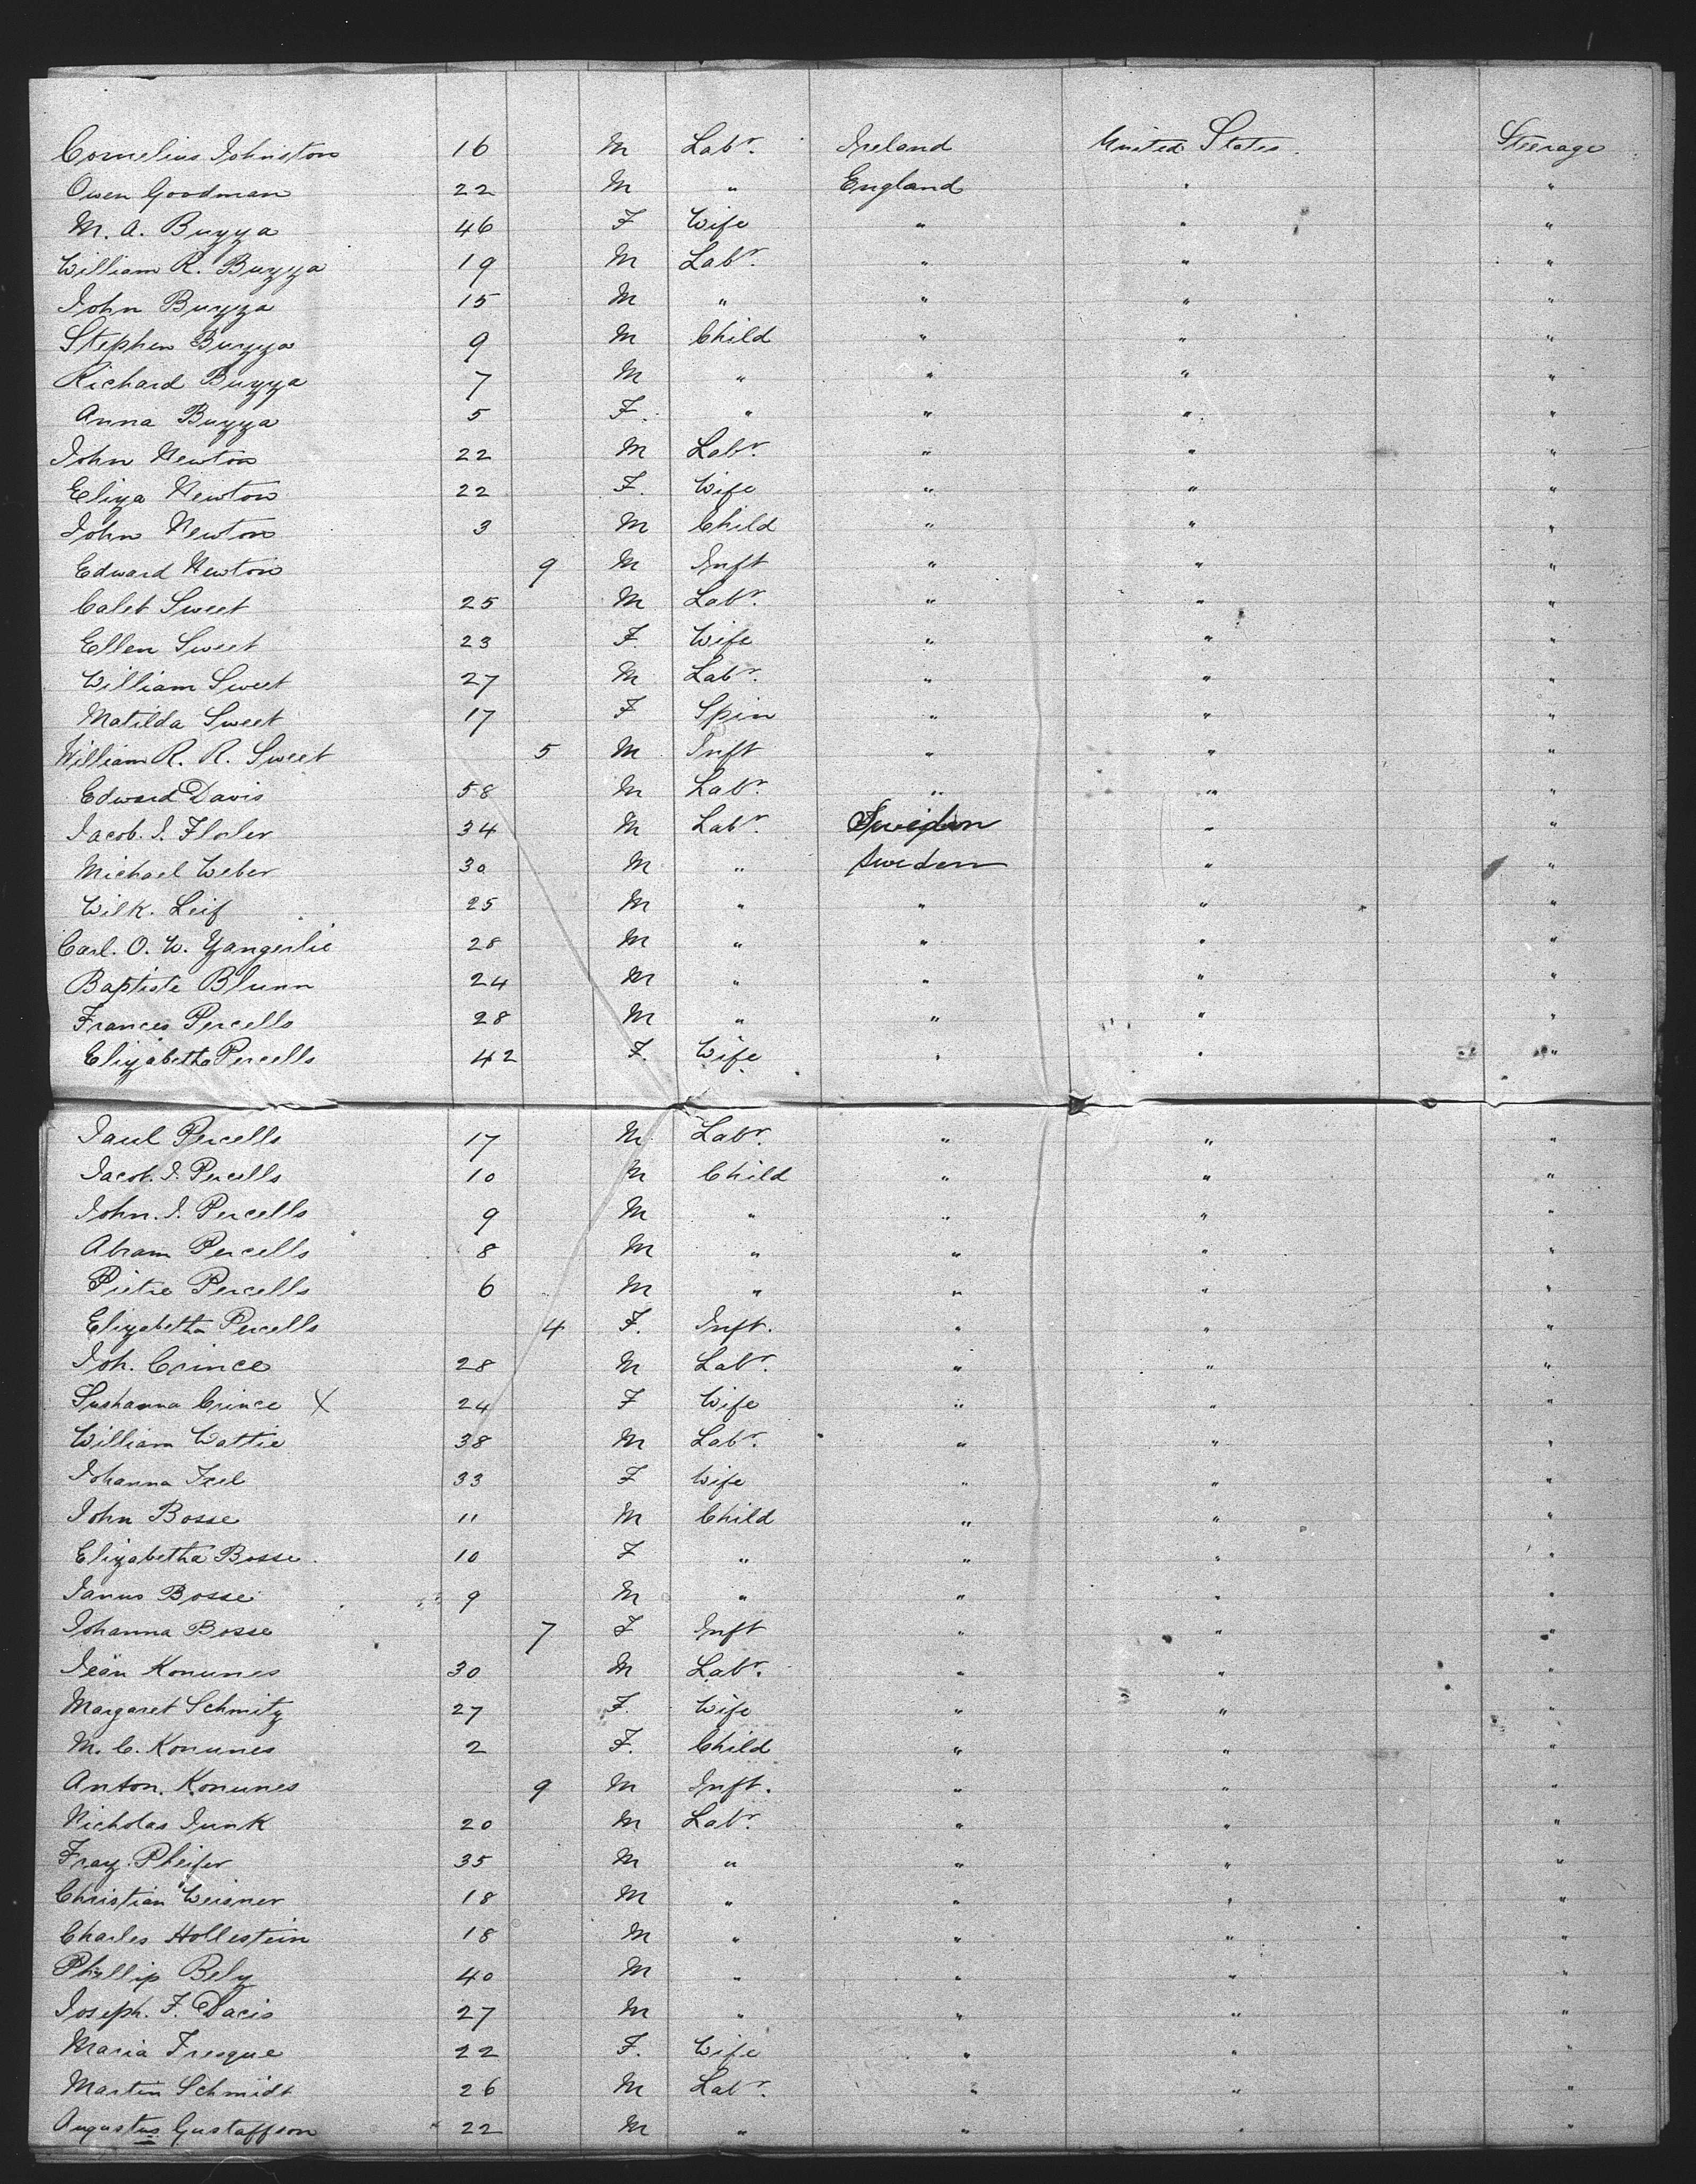 Cornelius Johnston 16 M Labr. Ireland United States. Steerage
Owen Goodman 22 M " England " "
M. A. Buzza 46 F Wife " " "
William R. Buzza 19 M Labr. " " "
John Buzza 15 M " " " "
Stephen Buzza 9 M Child " " "
Richard Buzza 7 M " " " "
Anna Buzza 5 F. " " " "
John Newton 22 M Labr. " " "
Eliza Newton 22 F. Wife " " "
John Newton 3 M Child " " "
Edward Newton 9 M Inft " " "
Caleb Sweet 25 M Labr. " " "
Ellen Sweet 23 F. Wife " " "
William Sweet 27 M Labr. " " "
Matilda Sweet 17 F Spin " " "
William R. R. Sweet 5 M Inft " " "
Edward Davis 58 M Labr. " " "
Jacob. J. 34 M Labr. Sweden " "
Michael Weber 30 M " Sweden " "
Wilk. Leif 25 M " " " "
Carl. O. W. Zangerlie 28 M " " " "
Baptiste Blunn 24 M " " " "
Frances Percells 28 M " " " "
Elizabetha Percells 42 F. Wife " " "
Paul Percells 17 M Labr. " " "
Jacob. J. Percells 10 M Child " " "
John. J. Percells 9 M " " " "
Abram Percells 8 M " " " "
Pietre Percells 6 M " " " "
Elizabetha Percells 4 F. Inft. " " "
Joh. Crince 28 M Labr. " " "
Sushanna Crince X 24 F Wife " " "
William Wattie 38 M Labr. " " "
Johanna 33 F Wife " " "
John Bosse 11 M Child " " "
Elizabetha Bosse. 10 F " " " "
Janus Bosse 9 M " " " "
Johanna Bosse 7 F Inft " " "
Jean Konunes 30 M Labr. " " "
Margaret Schmitz 27 F. Wife " " "
M. C. Konunes 2 F. Child " " "
Anton. Konunes 9 M Inft. " " "
Nicholas Junk 20 M Labr. " " "
Fraz. Pheifer 35 M " " " "
Christian Weisner 18 M " " " "
Charles Hollestein 18 M " " " "
Phillip Bely 40 M " " " "
Joseph. F. Dacis 27 M " " " "
Maria Fresque 22 F. Wife " " "
Martin Schmidt 26 M Labr. " " "
Augustus Gustaffson 22 M " " " "